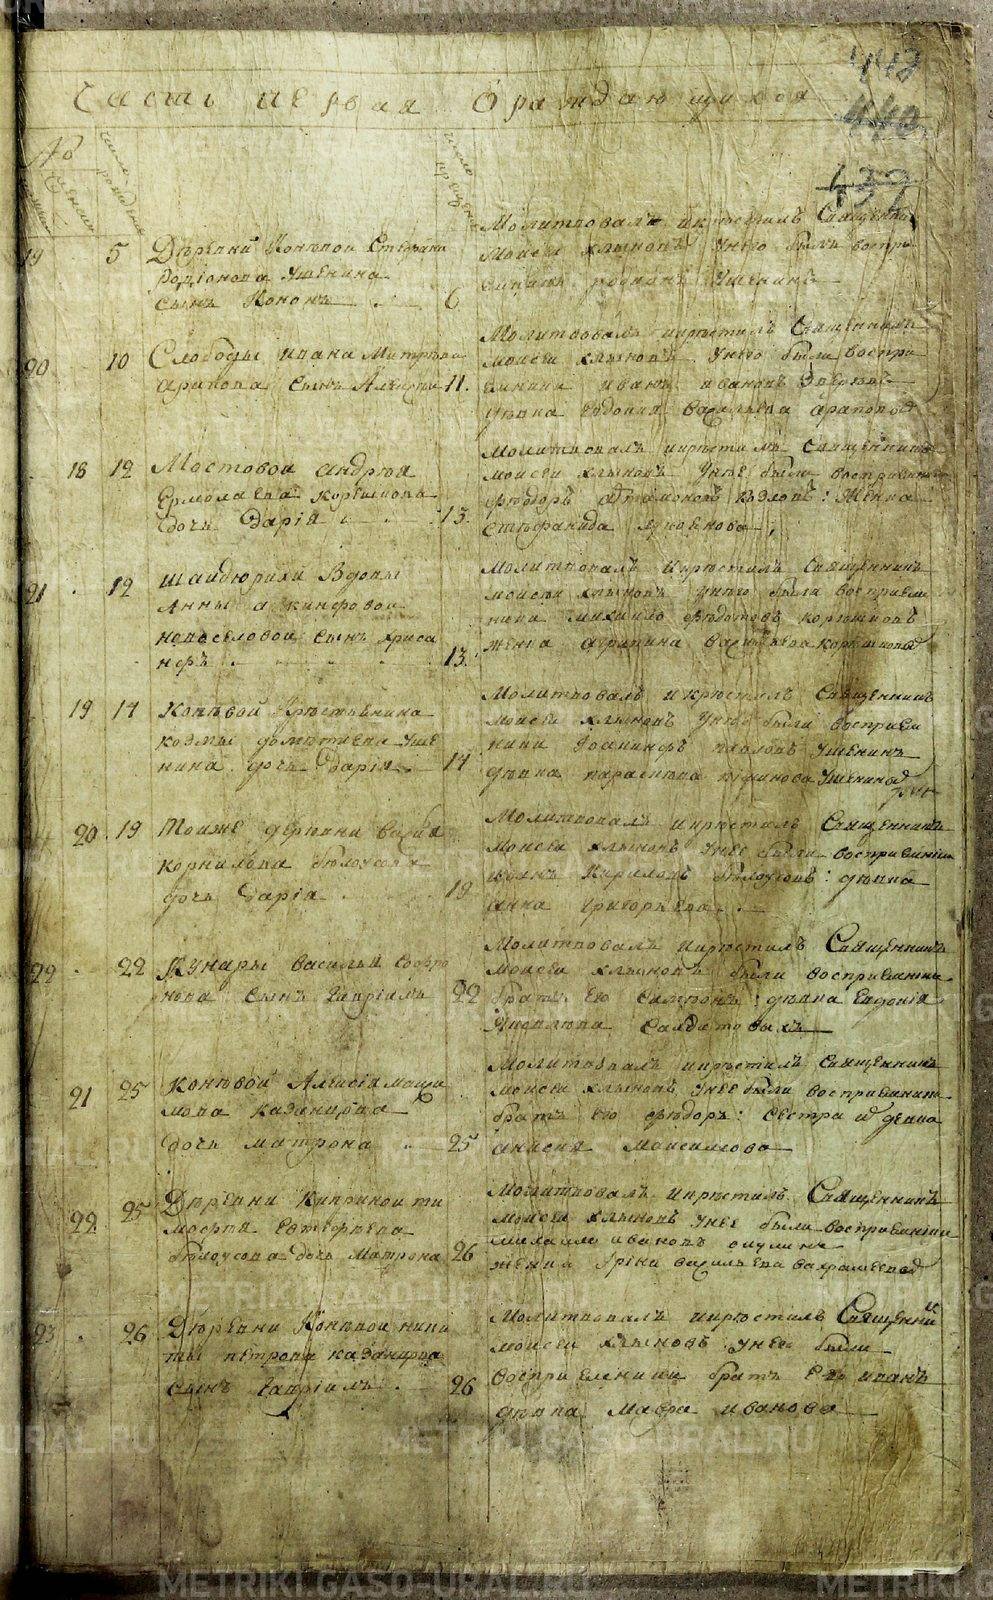 442
440
432
Часть первая О раждающихся
№
число рождения
число крещения
19 5 Деревни Коневой Стефана
Родионова Ушенина
сынъ Кононъ 6
Молитвовалъ и крестилъ Священникъ
Моисей Хлыновъ У него былъ воспри
емникъ родионъ Ушенинъ
20 10 Слободы Ивана Митрева
арапова сынъ Алексей 11.
Молитвовалъ икрестилъ Священникъ
моисеи хлыновъ Унего были воспри
емники иванъ ивановъ
девка евдокия Васильева арапова
18 12 Мостовои андрея
Ермолаева корюшкова
дочь Дарiя 13.
Молитвовалъ икрестилъ Священникъ
моисеи хлыновъ Унее были восприемники
федоръ артамоновъ козловъ: женка
стефанида лукоянова;
21 12 Шайдюрихи Вдовы
Анны акинфовои
новоселовои сынъ хриса
нфъ 13.
Молитвовалъ икрестилъ Священникъ
моисеи хлыновъ Унего были восприем
ники михаило федотовъ корюшковъ
женка аграпина васильева корюшкова
19 14 Коневой крестьянина
козмы деметиева Уше
нина дочь Дарiя 14
Молитвовалъ икрестилъ Священникъ
моисеи хлыновъ Унее были восприем
ники Iоакинфъ павловъ Ушенинъ
девка параскева Ушенина
20 19 Тоиже деревни
корнильева белоусова
дочь Дарiя 19
Молитвовалъ икрестилъ Священникъ
моисеи хлыновъ Унее были восприемники
иванъ Кириловъ белоусовъ: девка
анна григорьева
22 22 Кунары василья софро
нова сынъ гаврiилъ 22
Молитвовалъ икрестилъ Священникъ
моисеи хлыновъ были восприемники
братъ ево Самсонъ: девка Евдокiя
Салдатовыхъ
21 25 Коневой Алексiя макси
мова казанцова
дочь матрона 25
Молитвовалъ икрестилъ Священникъ
моисеи хлыновъ Унее были восприемники
братъ ево федоръ: Сестра и девка
анисия Максимова
22 25 Деревни Киприной ти
мофея Евтефеева
белоусова дочь матрона 26
Молитвовалъ икрестилъ Священникъ
моисеи хлыновъ Унее были восприемники
михаило ивановъ
женка Iрина васильева вахрамеева
23 26 Деревни Коневои ники
ты петрова казанцова
сынъ гаврiилъ 26
Молитвовалъ икрестилъ Священникъ
моисеи хлыновъ Унее были
восприемники братъ Ево иванъ
девка Мавра иванова
METRIKI.GASO-URAL.RU